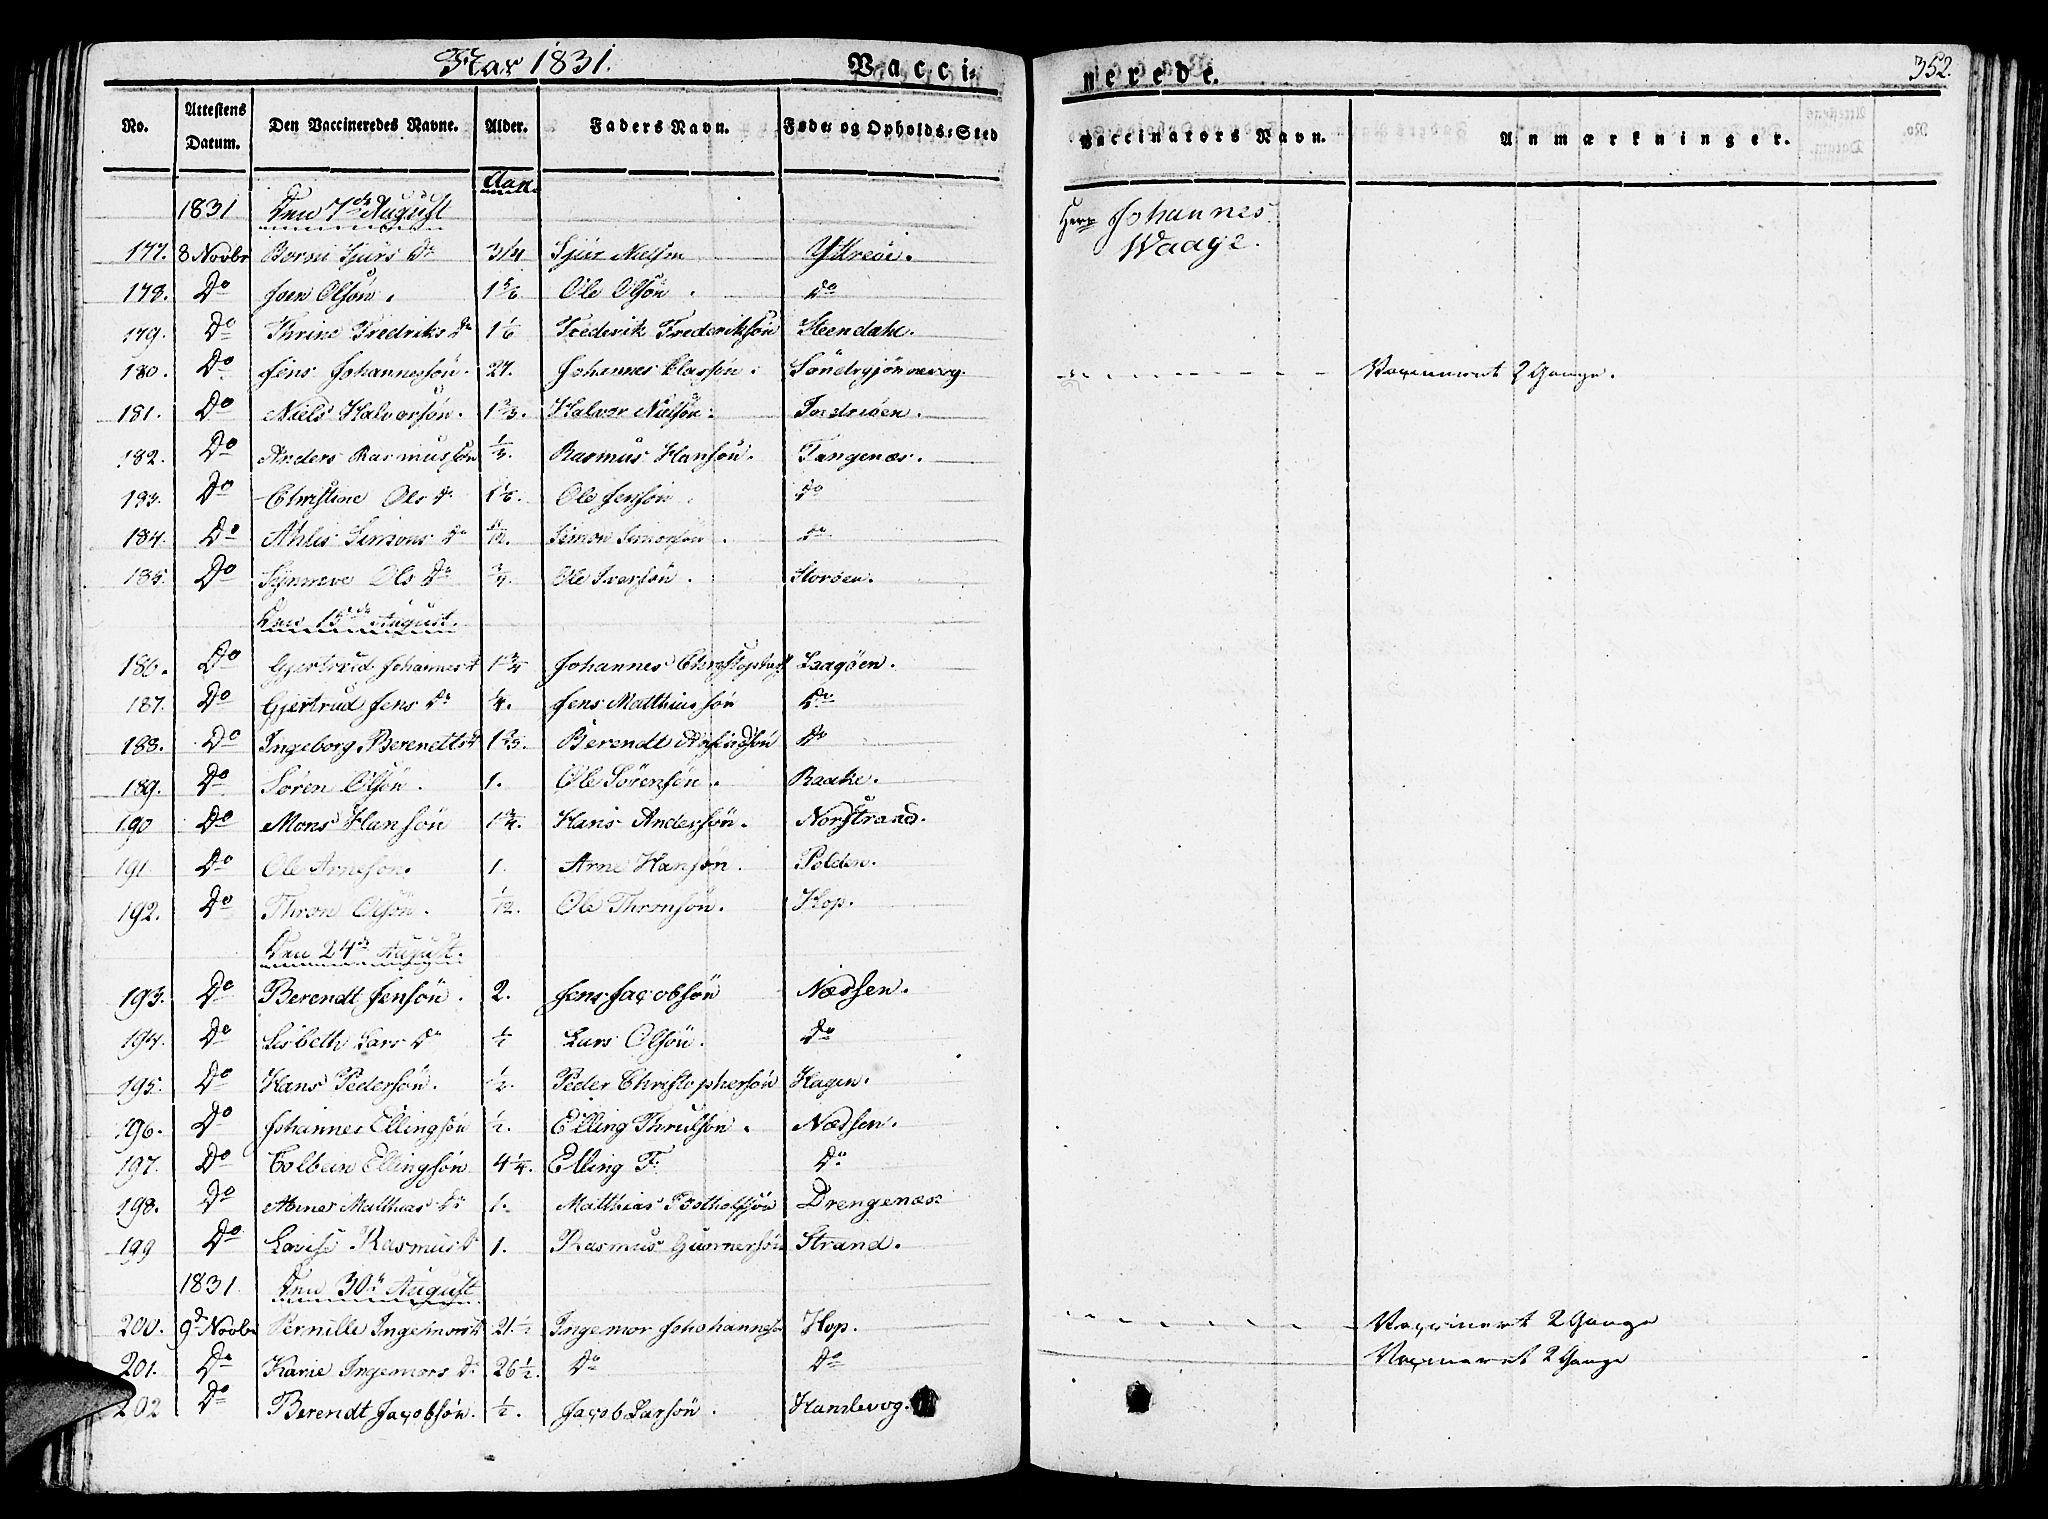 Aar 1831. Vacci-
nerede. 352.
No. Attestens Datum. Den Vaccineredes Navne. Alder. Faders Navn. Føde- og Opholds-Sted Vaccinators Navn. Anmærkninger.
Aar.
1831 Den 7de August Herr Johannes
177. 8 Novbr Sjurs Dr 3/4 Sjur Nielsøn Yttreøe. Waage.
178. Do Joen Olsøn. 1 5/6 Ole Olsøn. Do
179. Do Thrine Fredriks Dr 1 1/6 Frederik Frederiksøn Steendahl.
180. Do Jens Johannesøn. 27. Johannes Clasøn. Vaccineret 2 Gange.
181. Do Niels Halvorsøn. 1 2/3. Halvor Nielsøn. Indreøen.
182. Do Anders Rasmussøn 1/3. Rasmus Hansøn. Tangenæs.
183. Do Christine Ols Dr 1 1/6. Ole Jensøn. Do
184. Do Ahlis Simons Dr Simon Simonsøn. Do
185. Do Synneve Ols Dr 3/4 Ole Iversøn. Storøen.
Den 15de August.
186. Do Gjertrud Johannes D 1 3/4 Johannes Laagøen.
187. Do Gjertrud Jens Dr 1/4. Jens Matthiassøn Do
188. Do Ingeborg Berendts D 1 2/3. Berendt Do
189. Do Søren Olsøn. 1. Ole Sørensøn. Baake.
190 Do Mons Hansøn 1 3/4. Hans Andersøn. Norstrand.
191 Do Ole Arnesøn. 1. Arne Hansøn. Polden.
192. Do Thron Olsøn. 1/12. Ole Thronsøn. Hop.
Den 24de August.
193. Do Berendt Jensøn. 2. Jens Jacobsøn Nædsen.
194. Do Lisbeth Lars Dr 1/2 Lars Olsøn. Do
195. Do Hans Pedersøn. 1/2. Peder Christophersøn Hagen.
196. Do Johannes Ellingsøn 1/2. Elling Thrulsøn. Nædsen.
197. Do Colbein Ellingsøn 4 1/4. Elling T: Do
198. Do Matthias Dr 1. Matthias Botholfsøn Drengenæs.
199 Do Lovise Rasmus D 1. Rasmus Gunnersøn Strand.
1831. Den 30te August
200. 9de Novbr Pernille Ingemors D 21 1/2 Ingemor Johannesøn Hop. Vaccineret 2 Gange
201. Do Karie Ingemors Dr 26 1/2. Do Do Vaccineret 2 Gange
202 Do Berendt Jacobsøn. 1/2. Jacob Larsøn. Hanlevog.